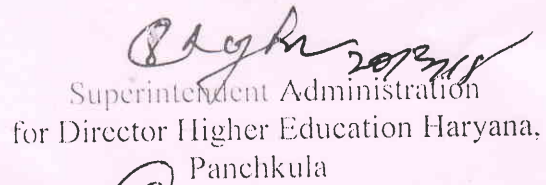 Superintendent Administration
for Director Higher Education Haryana,
Panchkula